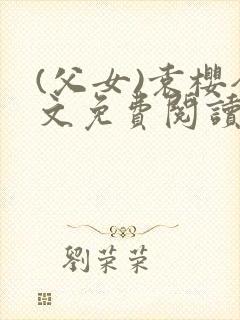 (父女)袁櫻
文免費閱讀
劉荣荣